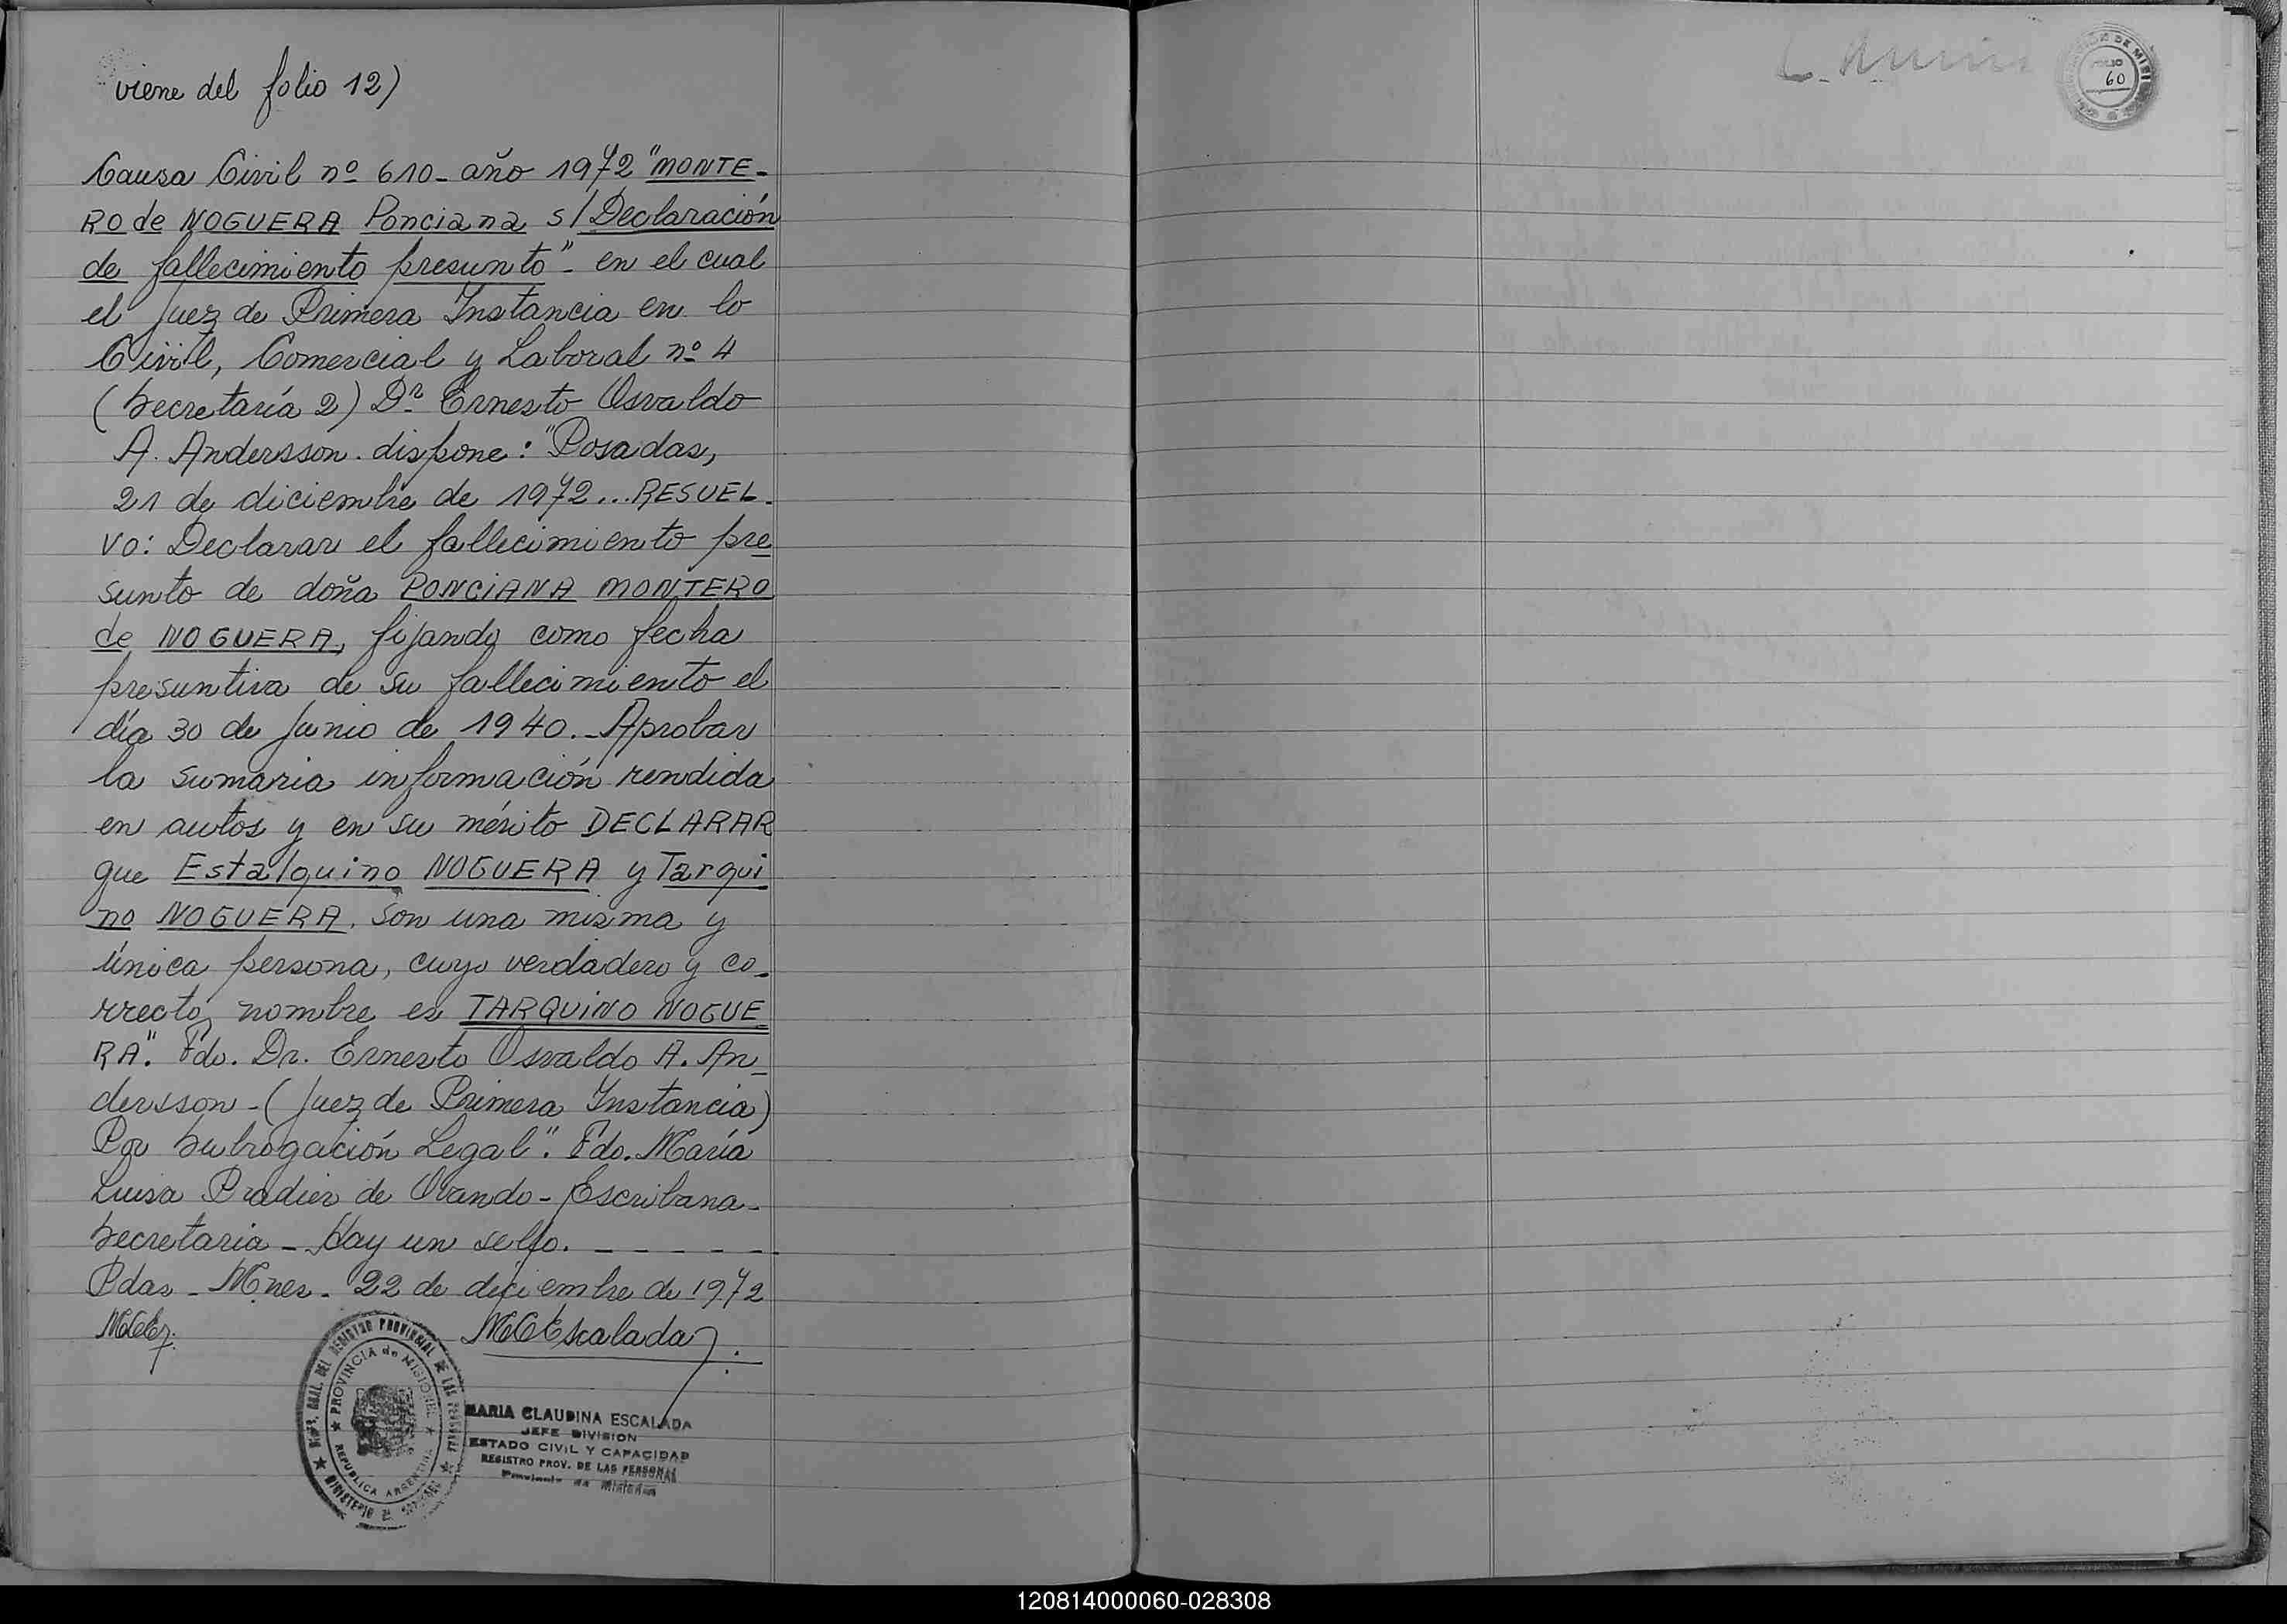 viene del folio 12)
Causa Civil nº 610- año 1972 "MONTE-
RO de NOGUERA Ponciana s/ Declaración
de fallecimiento presunto"- en el cual
el Juez de Primera Instancia en lo
Civil, Comercial y Laboral nº 4
(Secretaría 2) Dr. Ernesto Osvaldo
A. Andersson. dispone: "Posadas,
21 de diciembre de 1972... RESUEL-
VO: Declarar el fallecimiento pre
sunto de doña PONCIANA MONTERO
de NOGUERA, fijando como fecha
presuntiva de su fallecimiento el
día 30 de Junio de 1940.- Aprobar
la sumaria información rendida
en autos y en su mérito DECLARAR
que Estalquino NOGUERA y Tarqui
no NOGUERA. son una misma y
única persona, cuyo verdadero y co-
rrecto nombre es TARQUINO NOGUE
RA". Fdo. Dr. Ernesto Osvaldo A. An-
dersson-(Juez de Primera Instancia)
Por Subrogación Legal". Fdo. María
Luisa Pradier de Ovando- Escribana-
Secretaria - Hay un sello. - - - - - -
Pdas - Mnes - 22 de diciembre de 1972
MCEscalada
DIR. GRAL. DEL REGISTRO PROVINCIAL DE LAS PERSONAS
PROVINCIA de MISIONES
REPUBLICA ARGENTINA
MINISTERIO DE GOBIERNO
MARIA CLAUDINA ESCALADA
JEFE DIVISION
ESTADO CIVIL Y CAPACIDAD
REGISTRO PROV. DE LAS PERSONAS
Provincia de Misiones
FOLIO
60
120814000060-028308